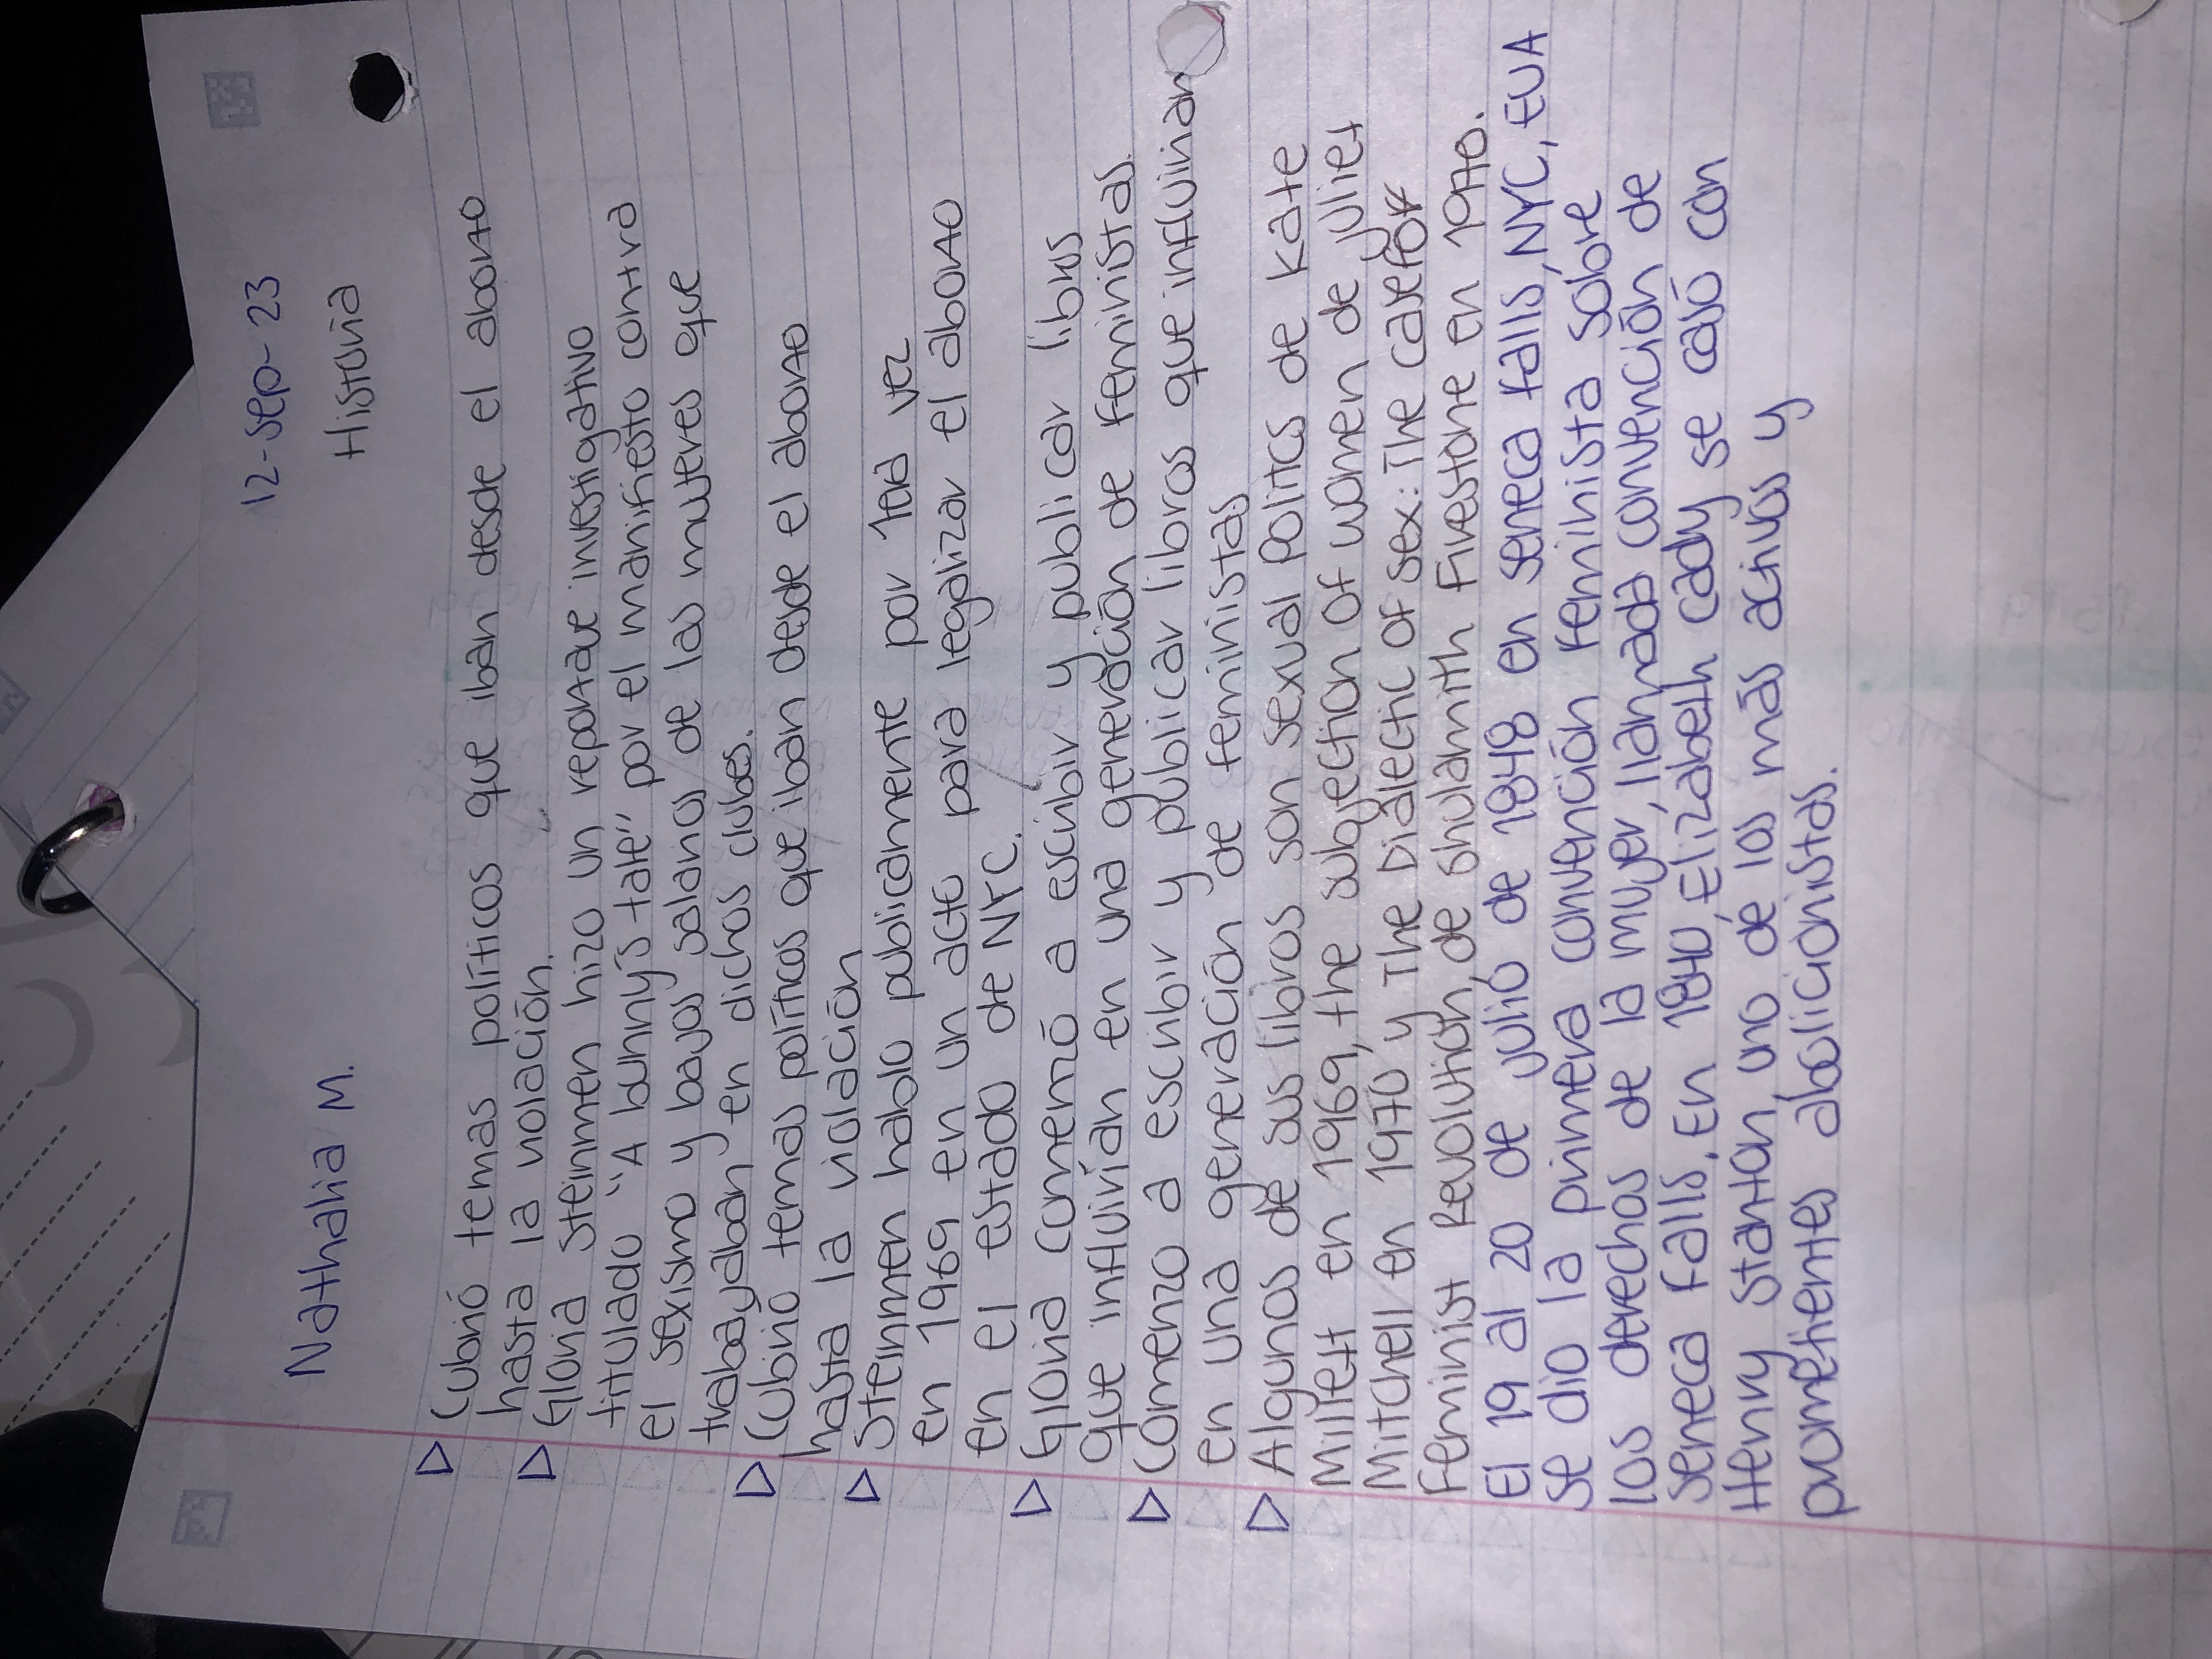 12-sep-23
Nathalia M.
Historia
▷ Cubrió temas políticos que iban desde el aborto
hasta la violación.
▷ Gloria Steinmen hizo un reportaje investigativo
titulado "A bunny's tale" por el manifiesto contra
el sexismo y bajos salarios de las mujeres que
trabajaban en dichos clubes.
▷ Cubrió temas políticos que iban desde el aborto
hasta la violación
▷ Steinmen hablo publicamente por 1era vez
en 1969 en un acto para legalizar el aborto
en el estado de NYC.
▷ Gloria comenzó a escribir y publicar libros
que influirían en una generación de feministas.
▷ Comenzo a escribir y publicar libros que influirian
en una generación de feministas
▷ Algunos de sus libros son sexual politcs de Kate
Millett en 1969, the subjection of women de juliet
Mitchell en 1970 y The Dialectic of sex: The case for
Feminist Revolution, de shulamith Firestone en 1970.
El 19 al 20 de julio de 1848 en seneca falls, NYC, EUA
se dio la primera convención feminista sobre
los derechos de la mujer, llamada convención de
seneca Falls. En 1840, Elizabeth cady se casó con
Henry Stanton, uno de los más activos y
prometientes abolicionistas.